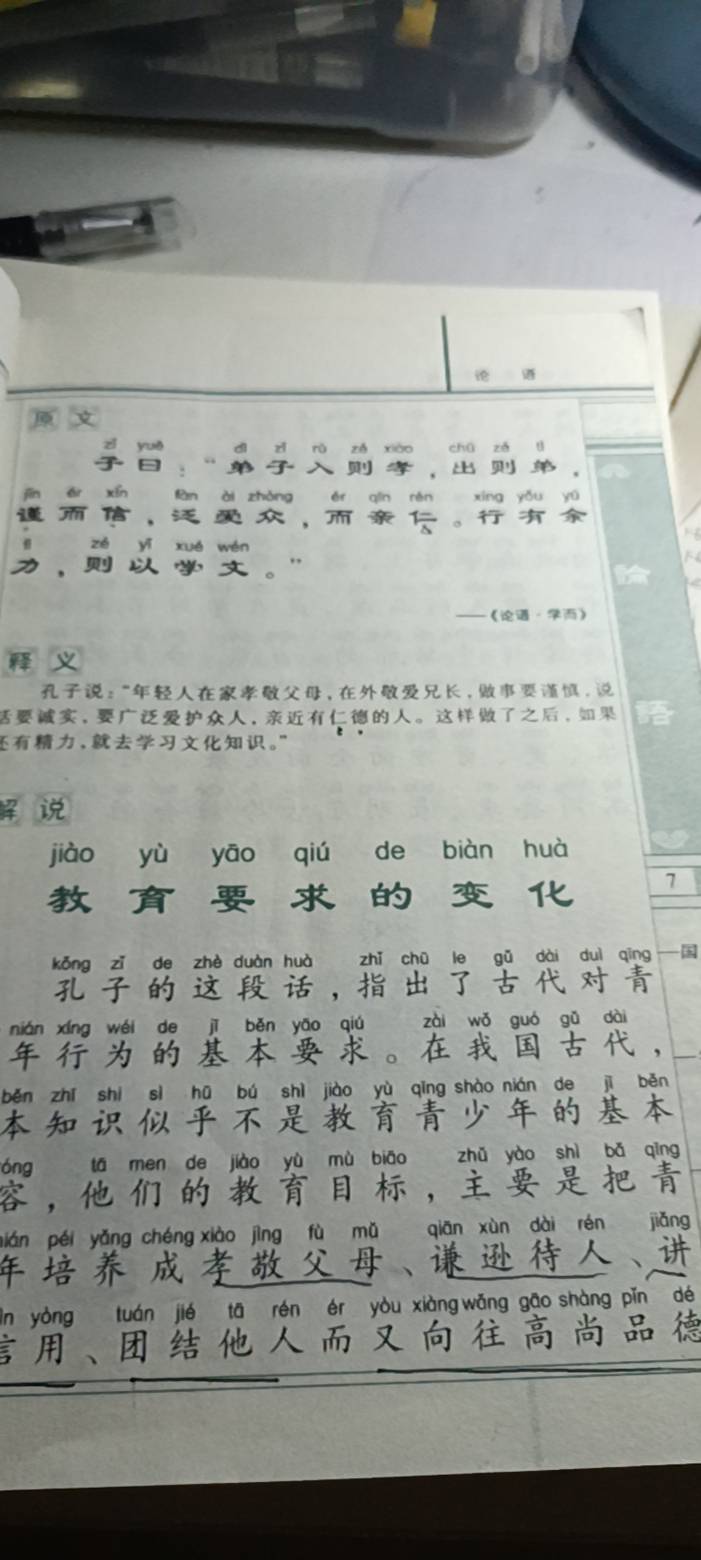 论 语
原文
zǐ yuē dì zǐ rù zé xiào chū zé tì
子曰：“弟子入则孝，出则弟，
jǐn ér xìn fàn ài zhòng ér qīn rén xíng yǒu yú
谨而信，泛爱众，而亲仁。行有余
lì zé yǐ xué wén
力，则以学文。”
——《论语·学而》
論
語
释义
孔子说：“年轻人在家孝敬父母，在外敬爱兄长，做事要谨慎，说
话要诚实，要广泛爱护众人，亲近有仁德的人。这样做了之后，如果
还有精力，就去学习文化知识。”
解说
jiào yù yāo qiú de biàn huà
教育要求的变化
7
kǒng zǐ de zhè duàn huà zhǐ chū le gǔ dài duì qīng
孔子的这段话，指出了古代对青
国
nián xíng wéi de jī běn yāo qiú zài wǒ guó gǔ dài
年行为的基本要求。在我国古代，
běn zhī shi sì hū bú shì jiào yù qīng shào nián de jī běn
本知识似乎不是教育青少年的基本
róng tā men de jiào yù mù biāo zhǔ yào shì bǎ qīng
容，他们的教育目标，主要是把青
nián péi yǎng chéng xiào jìng fù mǔ qiān xùn dài rén jiǎng
年培养成孝敬父母、谦逊待人、讲
yòng tuán jié tā rén ér yòu xiàng wǎng gāo shàng pǐn dé
信用、团结他人而又向往高尚品德